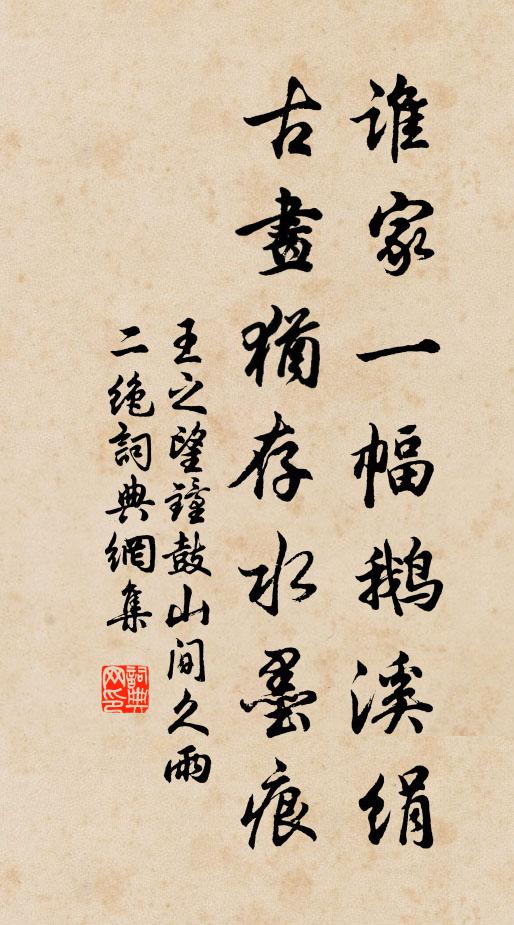 誰家一幅鹅溪绢
古畫猶存水墨痕
王之望鐘鼓山间久雨
二绝詞典網集
詞典网印